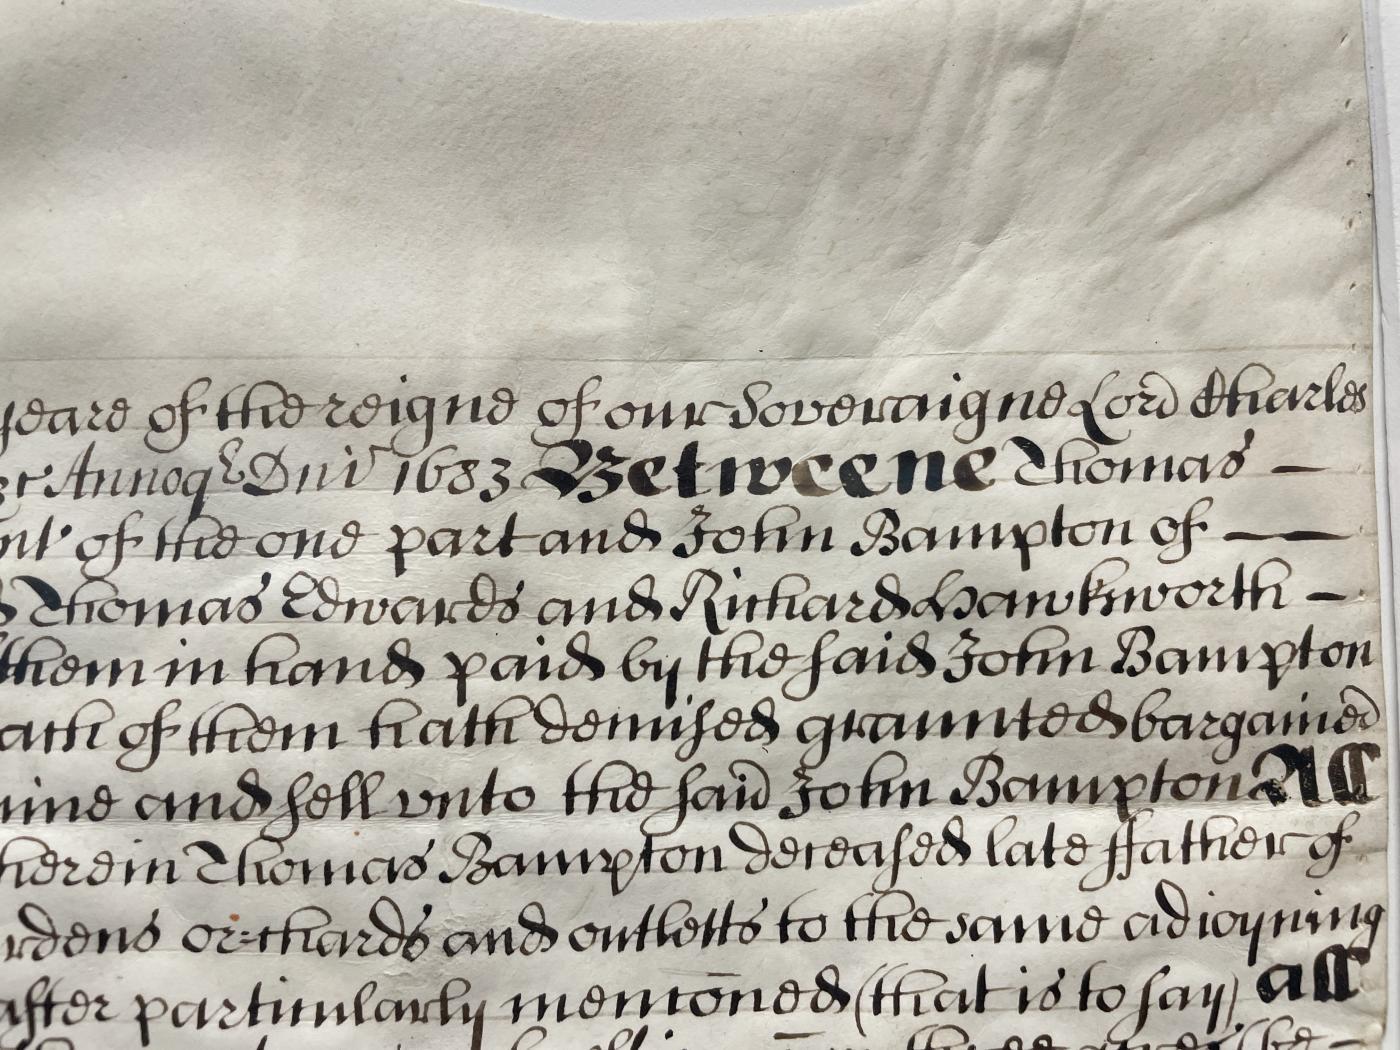 yeare of the reigne of our Soveraigne Lord Charles
Annoq Dni 1683 Betweene Thomas —
of the one part and John Bampton of — —
Thomas Edwards and Richard Hawksworth —
them in hand paid by the said John Bampton
of them hath demised graunted bargained
and sell vnto the said John Bampton All
herein Thomas Bampton deceased late ffather of
orchards and outletts to the same adioyning
after particularly menc̄oned (that is to say) all